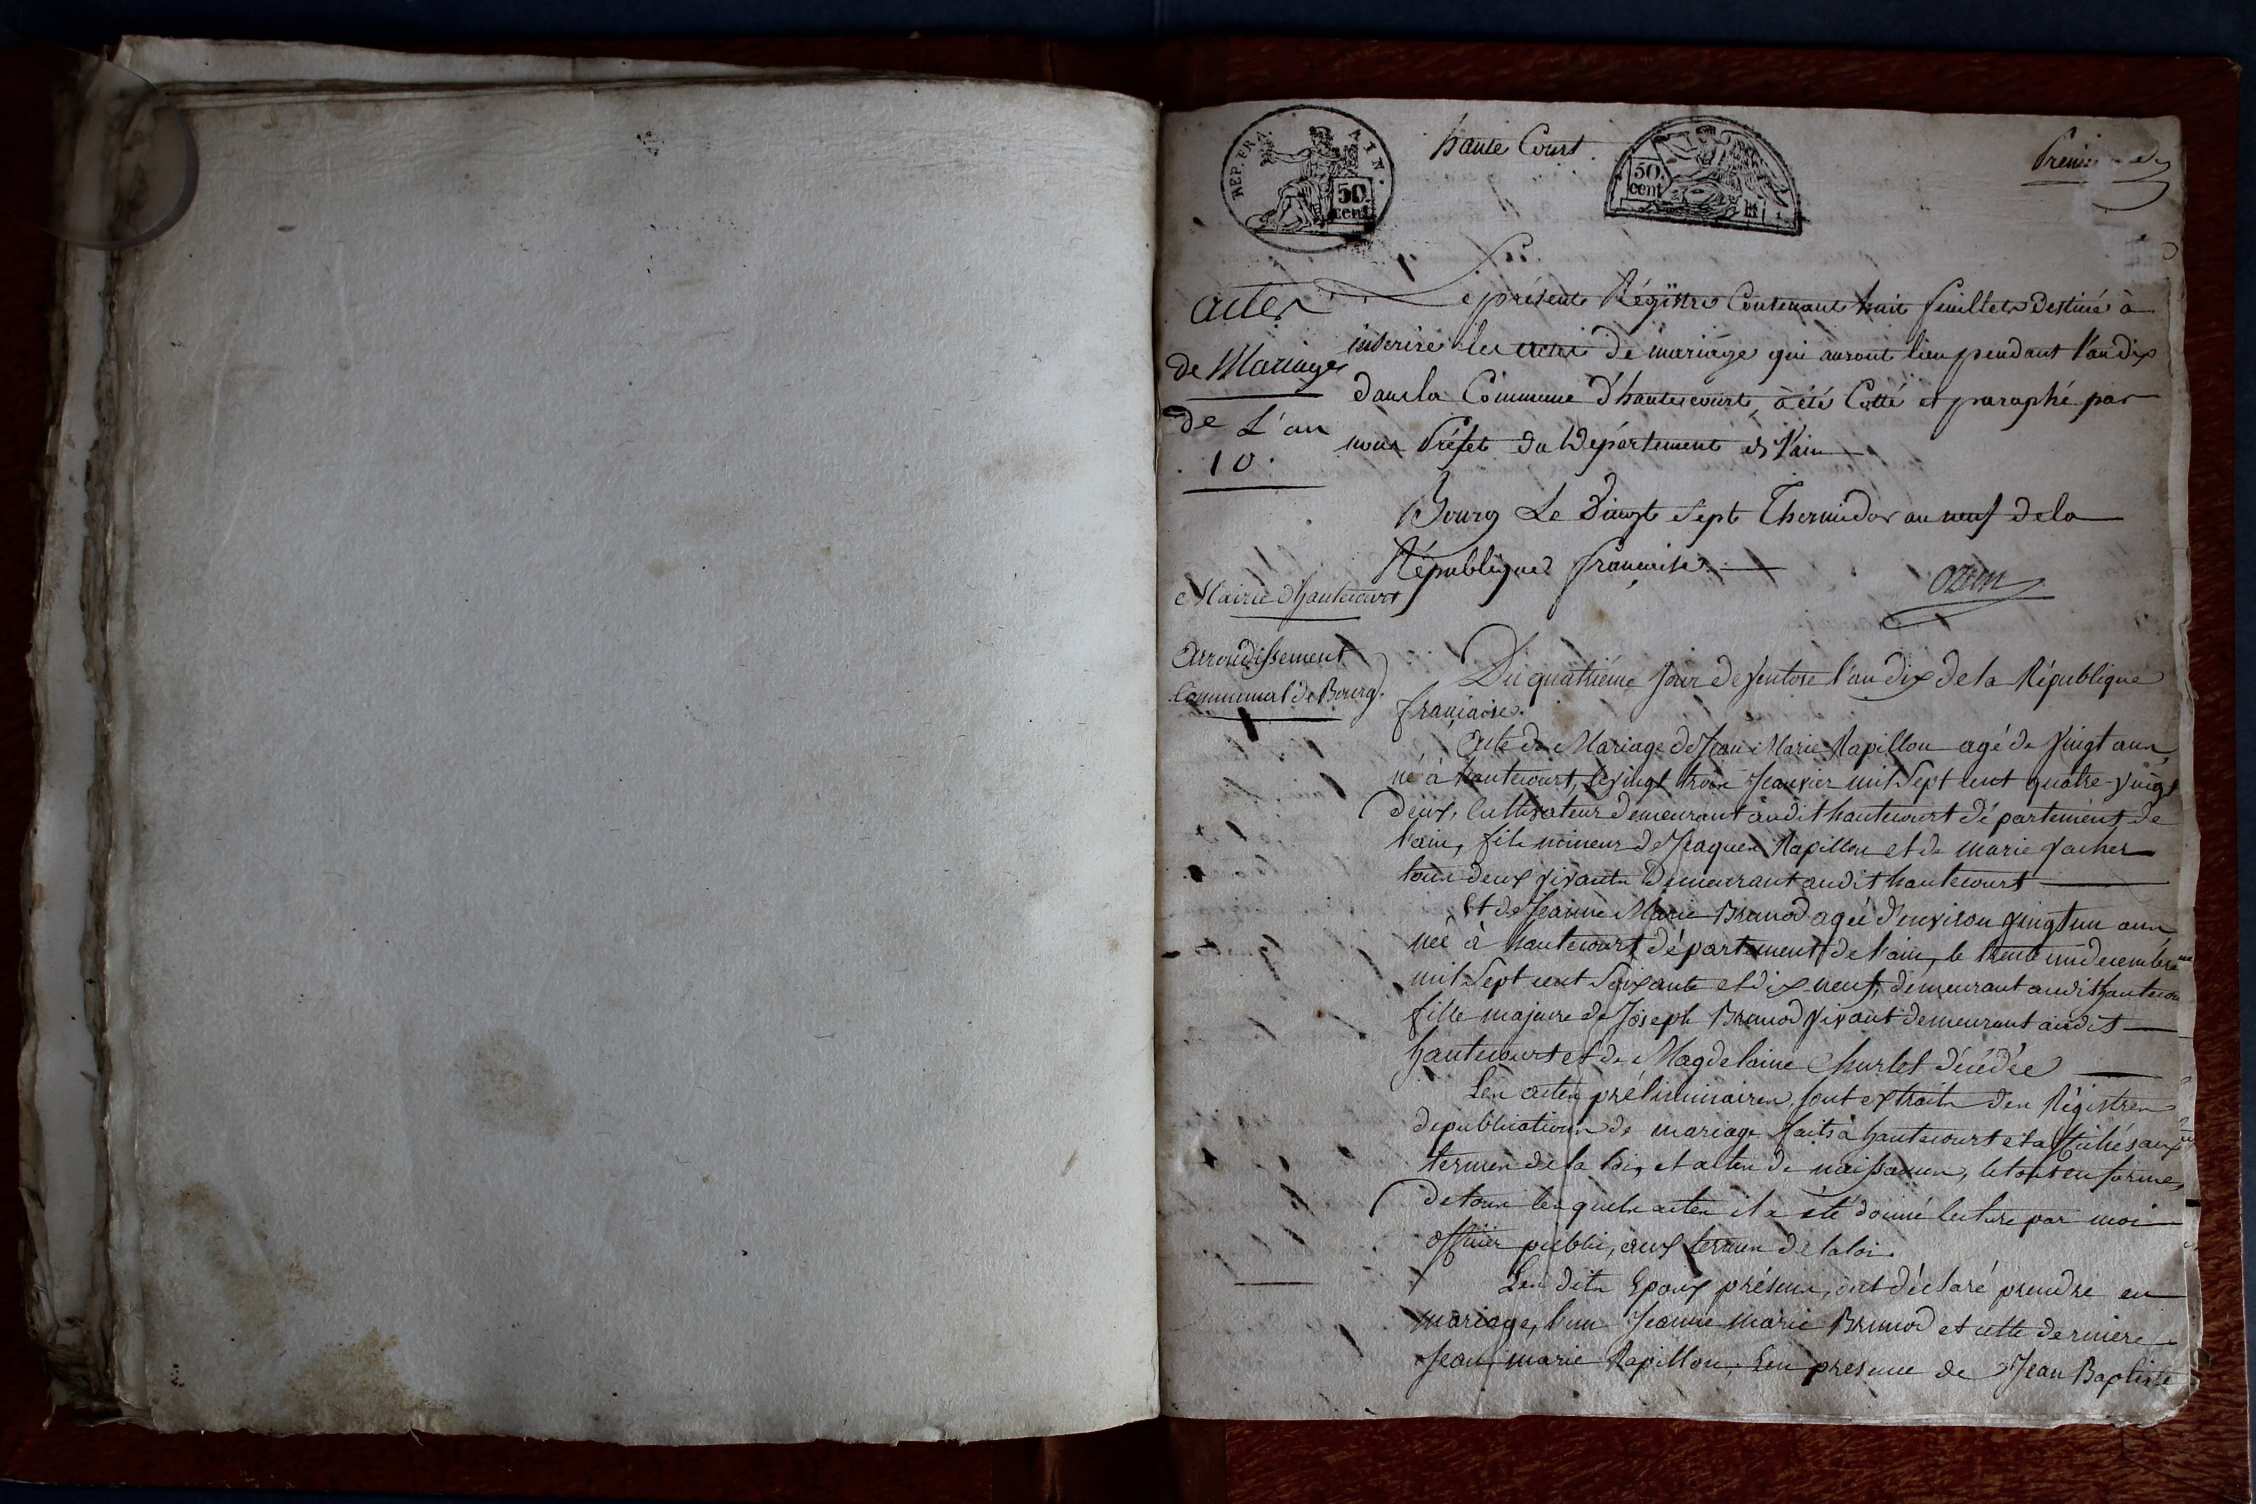 REP. FRA. AIN.
50.
cent
haute Court
50.
cent
Premier
actes
de Mariages
de L'an
10.
Le présent Régistre Contenant huit feuillets Destiné à
inscrire les actes de mariage qui auront lieu pendant l'an dix
dans la Commune d'hautecourt, à été Cotté et paraphé par
nous Préfet du Département de l'ain
Bourg Le Vingt Sept Thermidor an neuf de la
République française.
Ozun
Mairie d'hautecourt
Arrondissement
Communal de Bourg.
Du quatriéme jour de Ventose l'an dix de la République
française.
Acte de Mariage de Jean Marie Rapillon agé de vingt ans,
né à hautecourt, le vingt trois Janvier mil Sept cent quatre-vingt
deux, Cultivateur demeurant audit hautecourt département de
l'ain, fils mineur de Jaques Rapillon et de marie vacher
tous deux vivants Demeurant audit hautecourt
Et de Jeanne Marie Brunod agée d'environ vingt un ans
née à hautecourt département de l'ain, le trente un decembre
mil Sept cent Soixante et dix neuf, demeurant audit hautecour
fille majeure de Joseph Brunod vivant demeurant audit
hautecourt et de Magdelaine Churlet décédée
Les actes préliminaires sont extraits des Régistres
de publications de mariage faits à hautecourt et affichés aux
termes de la loi, et actes de naissances, le tout en forme,
de tous les quels actes il a été donné lecture par moi
officier public, aux termes de la loi.
Les dits Epoux présens, ont déclaré prendre en
mariage, l'un Jeanne marie Brunod et cette derniere
Jean marie Rapillon, En presence de Jean Baptiste